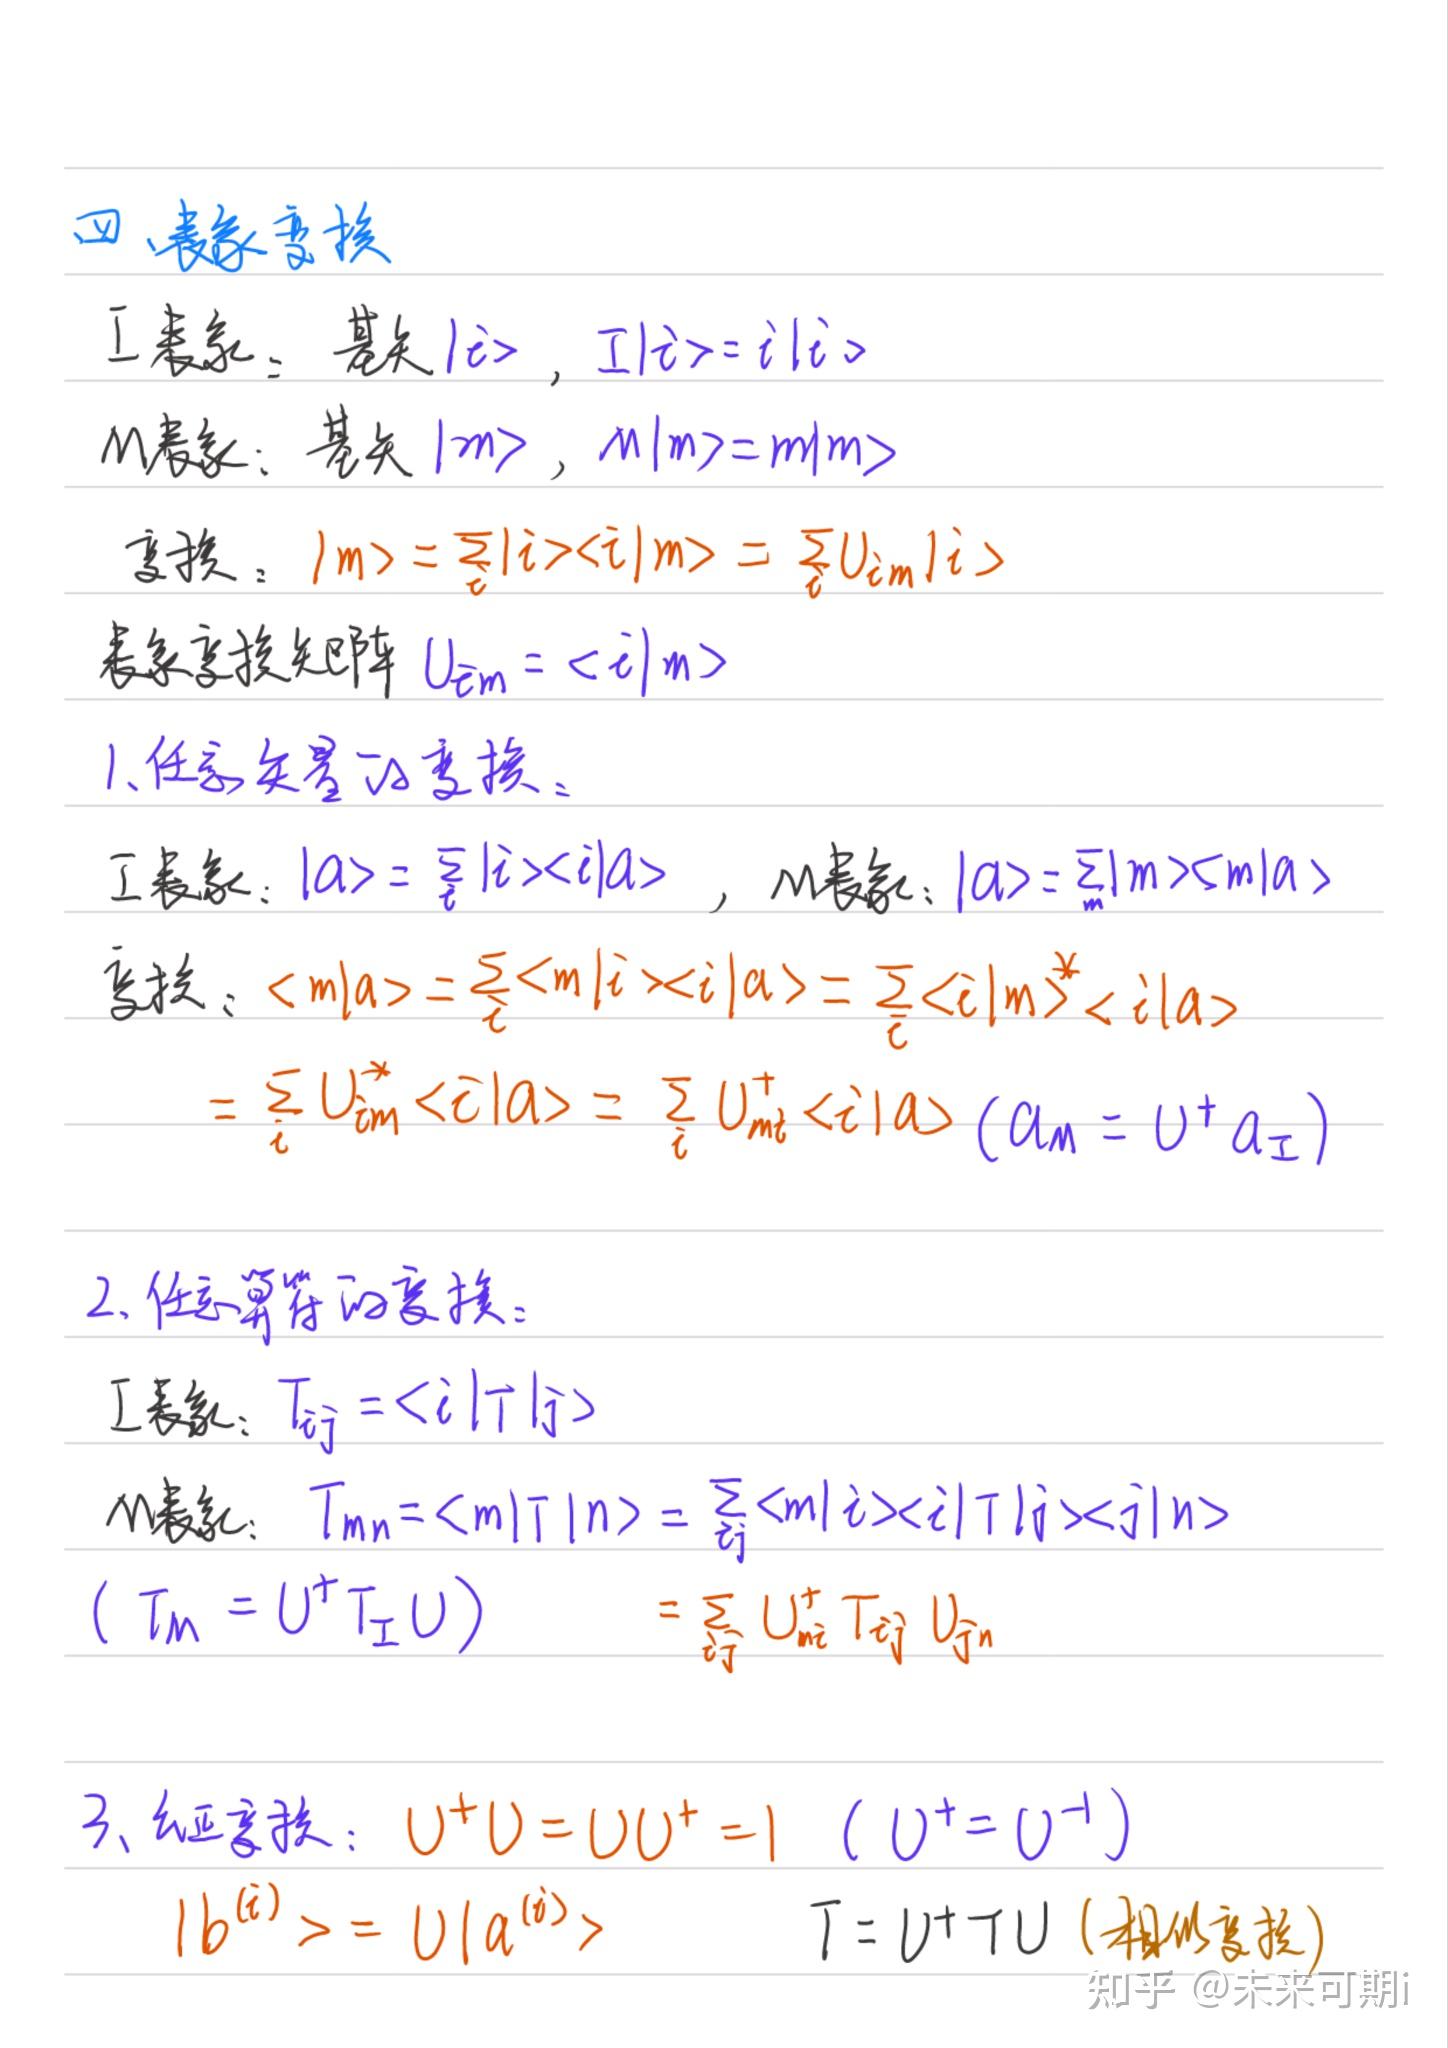 四、表象变换
I表象：基矢|i>，I|i>=i|i>
M表象：基矢|m>，M|m>=m|m>
变换：|m>=∑_i|i><i|m>=∑_i U_im|i>
表象变换矩阵 U_im=<i|m>
1、任意矢量的变换：
I表象：|a>=∑_i|i><i|a>，M表象：|a>=∑_m|m><m|a>
变换：<m|a>=∑_i<m|i><i|a>=∑_i<i|m>^*<i|a>
=∑_i U_im^*<i|a>=∑_i U^+_mi<i|a>(a_M=U^+a_I)
2、任意算符的变换：
I表象：T_ij=<i|T|j>
M表象：T_mn=<m|T|n>=∑_ij<m|i><i|T|j><j|n>
(T_M=U^+T_I U) =∑_ij U^+_mi T_ij U_jn
3、幺正变换：U^+U=UU^+=1 (U^+=U^-1)
|b^(i)>=U|a^(i)> T=U^+TU(相似变换)
知乎 @未来可期i